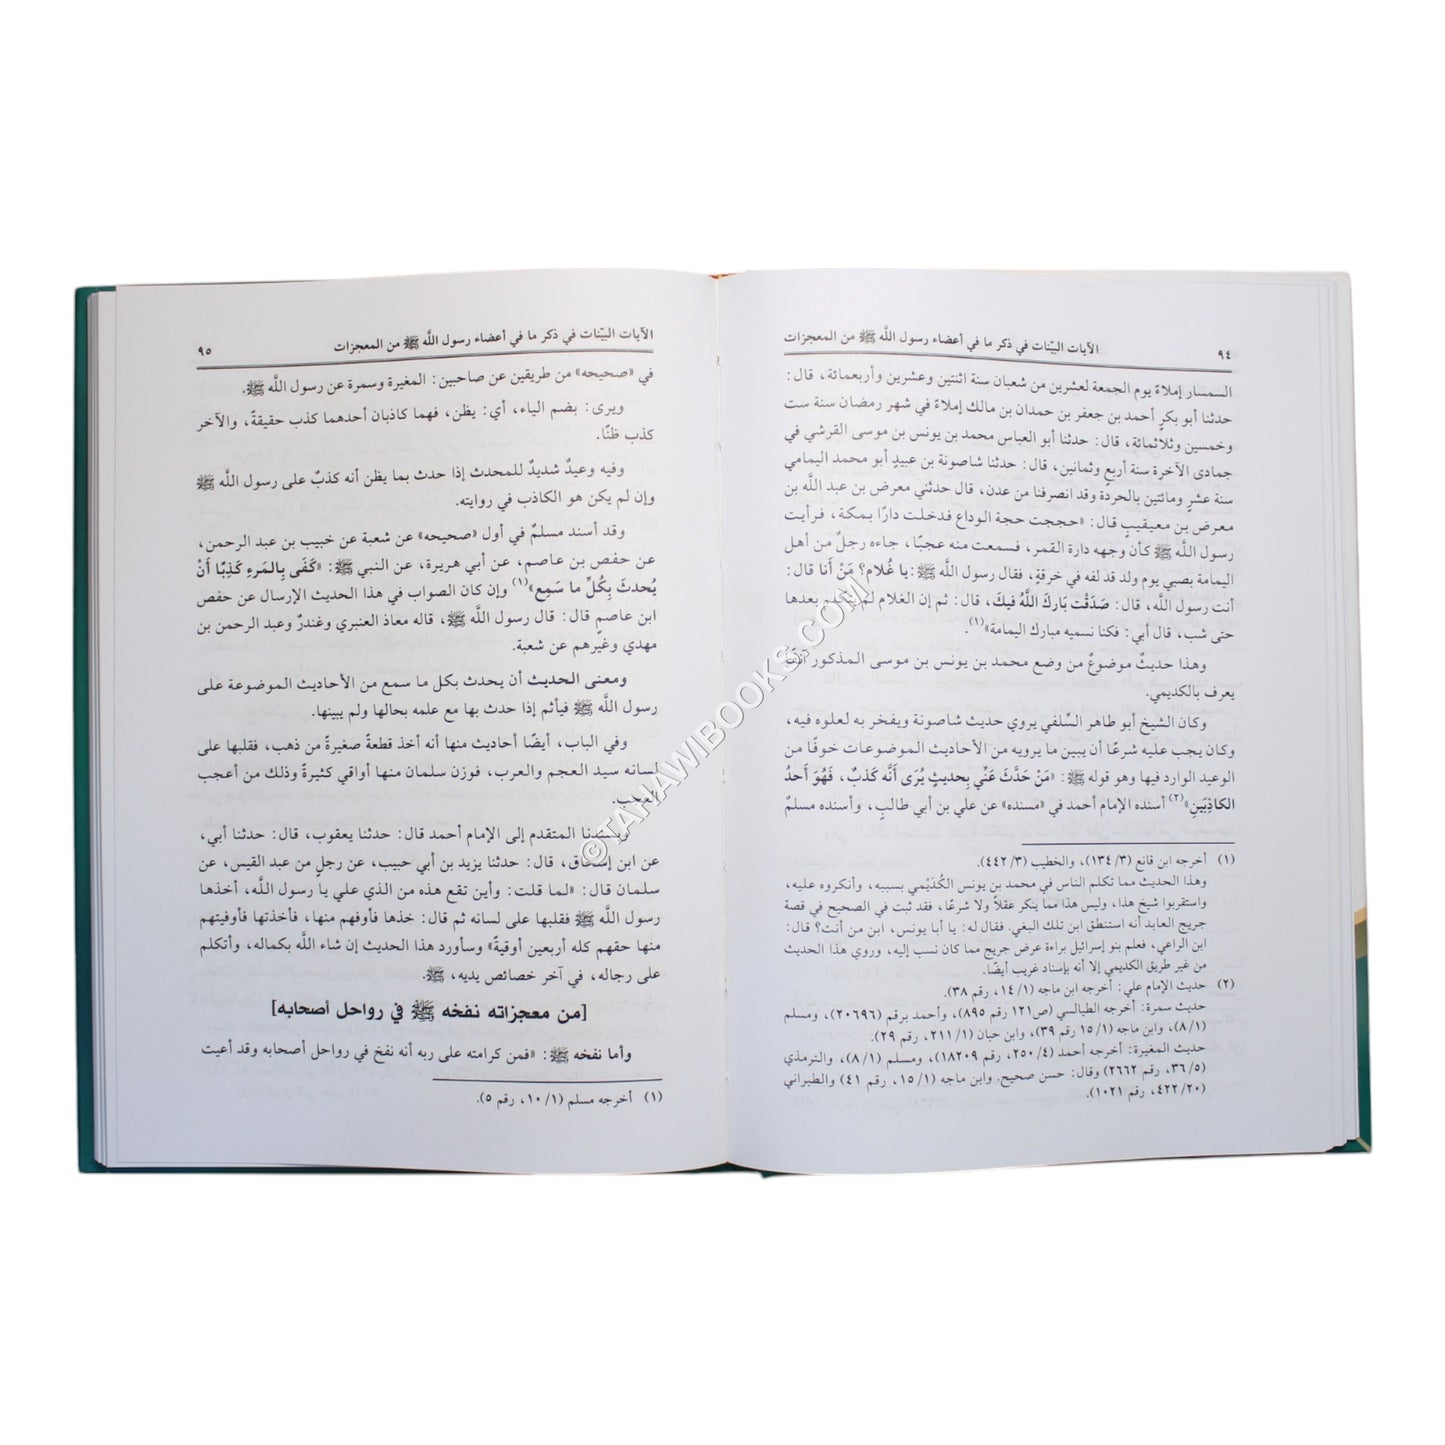 ٩٤ الآيات البيّنات في ذكر ما في أعضاء رسول اللَّه ﷺ من المعجزات
السمسار إملاءً يوم الجمعة لعشرين من شعبان سنة اثنتين وعشرين وأربعمائة، قال:
حدثنا أبو بكرٍ أحمد بن جعفر بن حمدان بن مالك إملاءً في شهر رمضان سنة ست
وخمسين وثلاثمائة، قال: حدثنا أبو العباس محمد بن يونس بن موسى القرشي في
جمادى الآخرة سنة أربع وثمانين، قال: حدثنا شاصونة بن عبيدٍ أبو محمد اليمامي
سنة عشرٍ ومائتين بالحردة وقد انصرفنا من عدن، قال حدثني معرض بن عبد اللَّه بن
معرض بن معيقيبٍ قال: «حججت حجة الوداع فدخلت دارًا بمكة، فرأيت
رسول اللَّه ﷺ كأن وجهه دارة القمر، فسمعت منه عجبًا، جاءه رجلٌ من أهل
اليمامة بصبي يوم ولد قد لفه في خرقةٍ، فقال رسول اللَّه ﷺ: يا غُلام؟ مَنْ أَنا قال:
أنت رسول اللَّه، قال: صَدَقْت بَارَكَ اللَّهُ فيكَ، قال: ثم إن الغلام لم يتكلم بعدها
حتى شب، قال أبي: فكنا نسميه مبارك اليمامة»(١).
وهذا حديثٌ موضوعٌ من وضع محمد بن يونس بن موسى المذكور آنفًا
يعرف بالكديمي.
وكان الشيخ أبو طاهر السِّلفي يروي حديث شاصونة ويفخر به لعلوه فيه،
وكان يجب عليه شرعًا أن يبين ما يرويه من الأحاديث الموضوعات خوفًا من
الوعيد الوارد فيها وهو قوله ﷺ: «مَنْ حَدَّثَ عَنِّي بِحديثٍ يُرَى أنَّه كَذبٌ، فَهُوَ أَحدُ
الكاذِبَينِ»(٢) أسنده الإمام أحمد في «مسنده» عن علي بن أبي طالبٍ، وأسنده مسلمٌ
(١) أخرجه ابن قانع (٣/ ١٣٤)، والخطيب (٣/ ٤٤٢).
وهذا الحديث مما تكلم الناس في محمد بن يونس الكُدَيْمي بسببه، وأنكروه عليه،
واستقربوا شيخ هذا، وليس هذا مما ينكر عقلاً ولا شرعًا، فقد ثبت في الصحيح في قصة
جريج العابد أنه استنطق ابن تلك البغي. فقال له: يا أبا يونس، ابن من أنت؟ قال:
ابن الراعي، فعلم بنو إسرائيل براءة عرض جريج مما كان نسب إليه، وروي هذا الحديث
من غير طريق الكديمي إلا أنه بإسناد غريب أيضًا.
(٢) حديث الإمام علي: أخرجه ابن ماجه (١/ ١٤، رقم ٣٨).
حديث سمرة: أخرجه الطيالسي (ص١٢١ رقم ٨٩٥)، وأحمد برقم (٢٠٦٩٦)، ومسلم
(١/ ٨)، وابن ماجه (١/ ١٥ رقم ٣٩)، وابن حبان (١/ ٢١١، رقم ٢٩).
حديث المغيرة: أخرجه أحمد (٤/ ٢٥٠، رقم ١٨٢٠٩)، ومسلم (١/ ٨)، والترمذي
(٥/ ٣٦، رقم ٢٦٦٢) وقال: حسن صحيح. وابن ماجه (١/ ١٥، رقم ٤١) والطبراني
(٢٠/ ٤٢٢، رقم ١٠٢١).
الآيات البيّنات في ذكر ما في أعضاء رسول اللَّه ﷺ من المعجزات ٩٥
في «صحيحه» من طريقين عن صاحبين: المغيرة وسمرة عن رسول اللَّه ﷺ.
ويرى: بضم الياء، أي: يظن، فهما كاذبان أحدهما كذب حقيقةً، والآخر
كذب ظنًا.
وفيه وعيدٌ شديدٌ للمحدث إذا حدث بما يظن أنه كذبٌ على رسول اللَّه ﷺ
وإن لم يكن هو الكاذب في روايته.
وقد أسند مسلمٌ في أول «صحيحه» عن شعبة عن خبيب بن عبد الرحمن،
عن حفص بن عاصم، عن أبي هريرة، عن النبي ﷺ: «كَفَى بِالمَرءِ كَذِبًا أَنْ
يُحدثَ بِكُلِّ ما سَمِع»(١) وإن كان الصواب في هذا الحديث الإرسال عن حفص
ابن عاصمٍ قال: قال رسول اللَّه ﷺ، قاله معاذ العنبري وغندرٌ وعبد الرحمن بن
مهدي وغيرهم عن شعبة.
ومعنى الحديث أن يحدث بكل ما سمع من الأحاديث الموضوعة على
رسول اللَّه ﷺ فيأثم إذا حدث بها مع علمه بحالها ولم يبينها.
وفي الباب، أيضًا أحاديث منها أنه أخذ قطعةً صغيرةً من ذهب، فقلبها على
لسانه سيد العجم والعرب، فوزن سلمان منها أواقي كثيرةً وذلك من أعجب
العجب.
وبسندنا المتقدم إلى الإمام أحمد قال: حدثنا يعقوب، قال: حدثنا أبي،
عن ابن إسحاق، قال: حدثنا يزيد بن أبي حبيب، عن رجلٍ من عبد القيس، عن
سلمان قال: «لما قلت: وأين تقع هذه من الذي علي يا رسول اللَّه، أخذها
رسول اللَّه ﷺ فقلبها على لسانه ثم قال: خذها فأوفهم منها، فأخذتها فأوفيتهم
منها حقهم كله أربعين أوقيةً» وسأورد هذا الحديث إن شاء اللَّه بكماله، وأتكلم
على رجاله، في آخر خصائص يديه، ﷺ.
[من معجزاته نفخه ﷺ في رواحل أصحابه]
وأما نفخه ﷺ: «فمن كرامته على ربه أنه نفخ في رواحل أصحابه وقد أعيت
(١) أخرجه مسلم (١/ ١٠، رقم ٥).
©TAHAWIBOOKS.COM